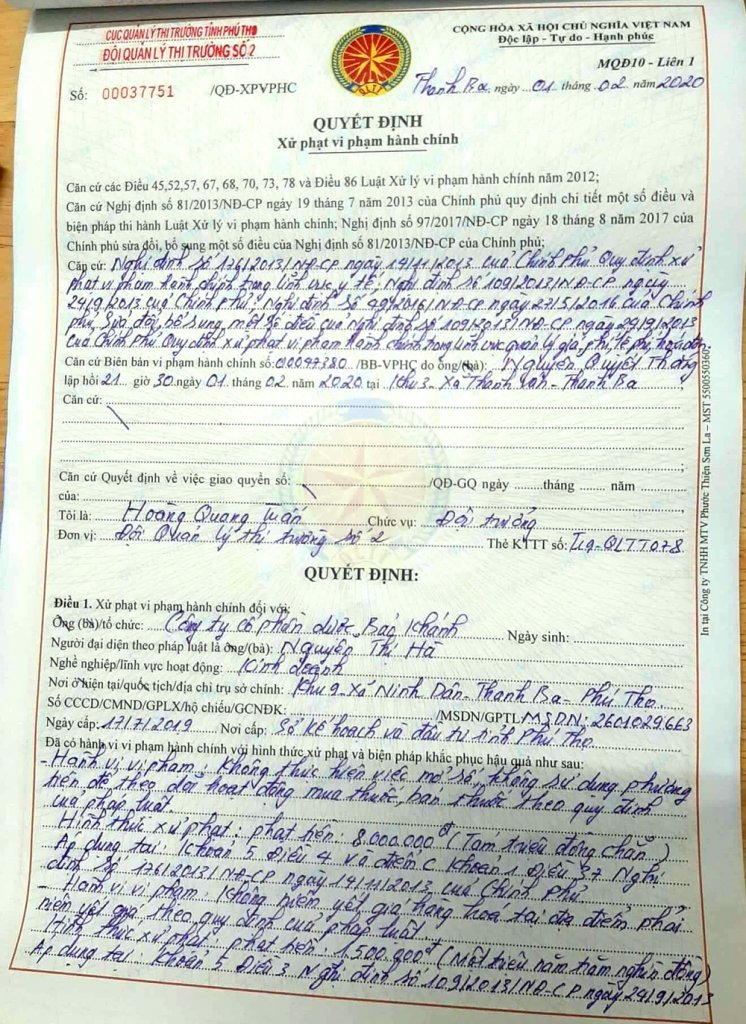 CỤC QUẢN LÝ THỊ TRƯỜNG TỈNH PHÚ THỌ
ĐỘI QUẢN LÝ THỊ TRƯỜNG SỐ 2
CỘNG HÒA XÃ HỘI CHỦ NGHĨA VIỆT NAM
Độc lập - Tự do - Hạnh phúc
MQĐ10 - Liên 1
Số: 00037751 /QĐ-XPVPHC
Thanh Ba, ngày 01 tháng 02 năm 2020
QUYẾT ĐỊNH
Xử phạt vi phạm hành chính
Căn cứ các Điều 45,52,57, 67, 68, 70, 73, 78 và Điều 86 Luật Xử lý vi phạm hành chính năm 2012;
Căn cứ Nghị định số 81/2013/NĐ-CP ngày 19 tháng 7 năm 2013 của Chính phủ quy định chi tiết một số điều và
biện pháp thi hành Luật Xử lý vi phạm hành chính; Nghị định số 97/2017/NĐ-CP ngày 18 tháng 8 năm 2017 của
Chính phủ sửa đổi, bổ sung một số điều của Nghị định số 81/2013/NĐ-CP của Chính phủ;
Căn cứ: Nghị định số 176/2013/NĐ-CP ngày 14/11/2013 của Chính Phủ Quy định xử
phạt vi phạm hành chính trong lĩnh vực y tế; Nghị định số 109/2013/NĐ-CP ngày
24/9/2013 của Chính phủ; Nghị định số 49/2016/NĐ-CP ngày 27/5/2016 của Chính
phủ, sửa đổi, bổ sung một số điều của nghị định số 109/2013/NĐ-CP ngày 24/9/2013
của Chính Phủ Quy định xử phạt vi phạm hành chính trong lĩnh vực quản lý giá, phí, lệ phí, hóa đơn.
Căn cứ Biên bản vi phạm hành chính số: 00097380 /BB-VPHC do ông/(bà): Nguyễn Quyết Thắng
lập hồi 21 giờ 30 ngày 01 tháng 02 năm 2020 tại Khu 3 - Xã Thanh Vân - Thanh Ba
Căn cứ:
Căn cứ Quyết định về việc giao quyền số: /QĐ-GQ ngày tháng năm
của:
Tôi là: Hoàng Quang Tuấn Chức vụ: Đội trưởng
Đơn vị: Đội Quản lý thị trường số 2 Thẻ KTTT số: QLTT078
QUYẾT ĐỊNH:
Điều 1. Xử phạt vi phạm hành chính đối với:
Ông (bà)/tổ chức: Công ty cổ phần dược Bảo Khánh Ngày sinh:
Người đại diện theo pháp luật là ông/(bà): Nguyễn Thị Hà
Nghề nghiệp/lĩnh vực hoạt động: Kinh doanh
Nơi ở hiện tại/quốc tịch/địa chỉ trụ sở chính: Khu 9 - Xã Ninh Dân - Thanh Ba - Phú Thọ
Số CCCD/CMND/GPLX/hộ chiếu/GCNĐK: /MSDN/GPTL MSDN: 2601029663
Ngày cấp: 17/7/2019 Nơi cấp: Sở kế hoạch và đầu tư tỉnh Phú Thọ
Đã có hành vi vi phạm hành chính với hình thức xử phạt và biện pháp khắc phục hậu quả như sau:
- Hành vi vi phạm: Không thực hiện việc mở sổ, không sử dụng phương
tiện để theo dõi hoạt động mua thuốc, bán thuốc theo quy định
của pháp luật.
Hình thức xử phạt: phạt tiền: 8.000.000đ (Tám triệu đồng chẵn)
Áp dụng tại: Khoản 5 Điều 4 và điểm c khoản 1 Điều 37 Nghị
định số 176/2013/NĐ-CP ngày 14/11/2013 của Chính Phủ
- Hành vi vi phạm: Không niêm yết giá hàng hóa tại địa điểm phải
niêm yết giá theo quy định của pháp luật
Hình thức xử phạt: phạt tiền: 1.500.000đ (Một triệu năm trăm nghìn đồng)
Áp dụng tại: Khoản 5 Điều 3 Nghị định số 109/2013/NĐ-CP ngày 24/9/2013
In tại Công ty TNHH MTV Phước Thiện Sơn La – MST 5500550360